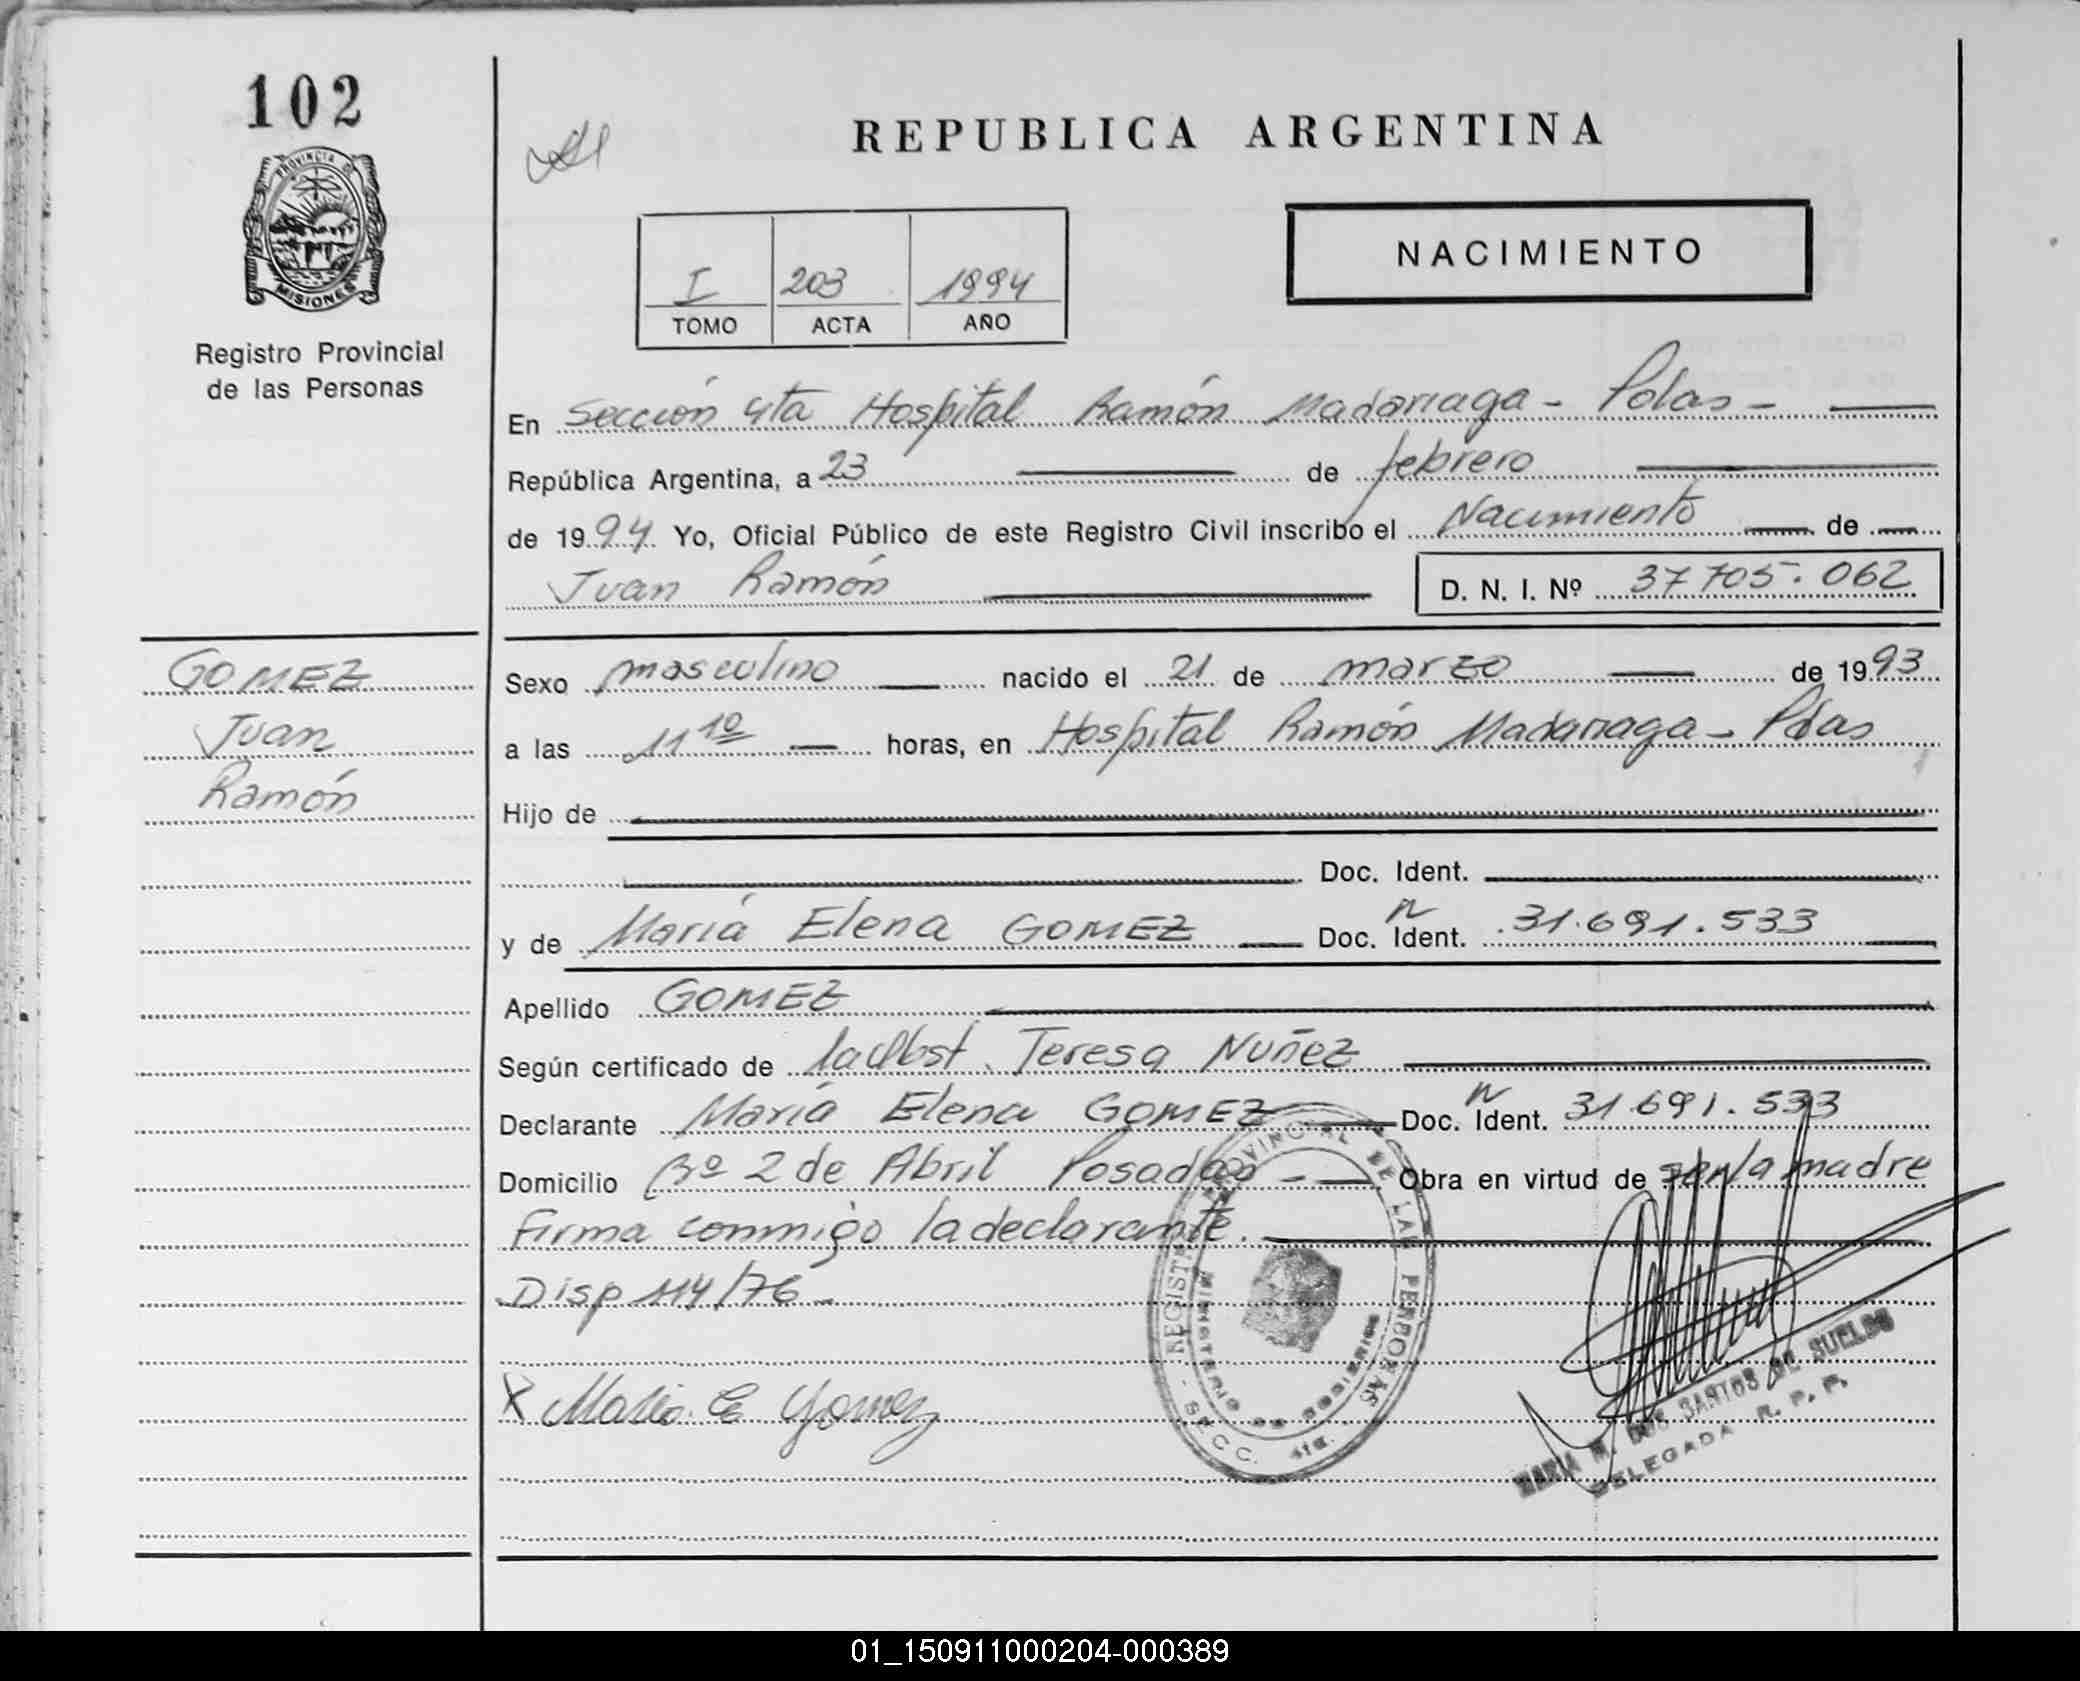 102
PROVINCIA DE
MISIONES
Registro Provincial
de las Personas
REPUBLICA ARGENTINA
NACIMIENTO
I 203 1994
TOMO ACTA AÑO
En Sección 4ta Hospital Ramón Madariaga - Pdas -
República Argentina, a 23 de febrero
de 1994 Yo, Oficial Público de este Registro Civil inscribo el Nacimiento de
Juan Ramón D. N. I. Nº 37705.062
GOMEZ
Juan
Ramón
Sexo masculino nacido el 21 de marzo de 1993
a las 11 10 horas, en Hospital Ramón Madariaga - Pdas
Hijo de
Doc. Ident.
y de María Elena GOMEZ Doc. Ident. 31.691.533
Apellido GOMEZ
Según certificado de la Obst. Teresa Nuñez
Declarante María Elena GOMEZ Doc. Ident. 31.691.533
Domicilio Bº 2 de Abril Posadas - Obra en virtud de ser la madre
Firma conmigo la declarante.
Disp 114/76 -
X Maria E Gomez
REGISTRO PROVINCIAL DE LAS PERSONAS
MINISTERIO DE GOBIERNO
SECC. 4ta.
MARIA M. DOS SANTOS DE SUELDO
DELEGADA R. P. P.
01_150911000204-000389